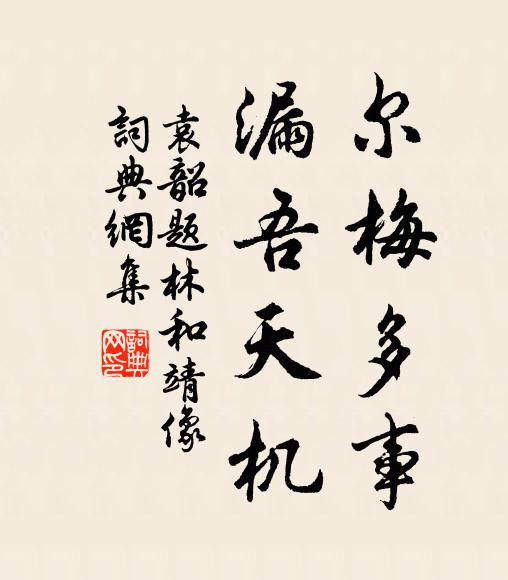 尔梅多事
漏吾天机
袁韶题林和靖像
詞典網集
詞典网印